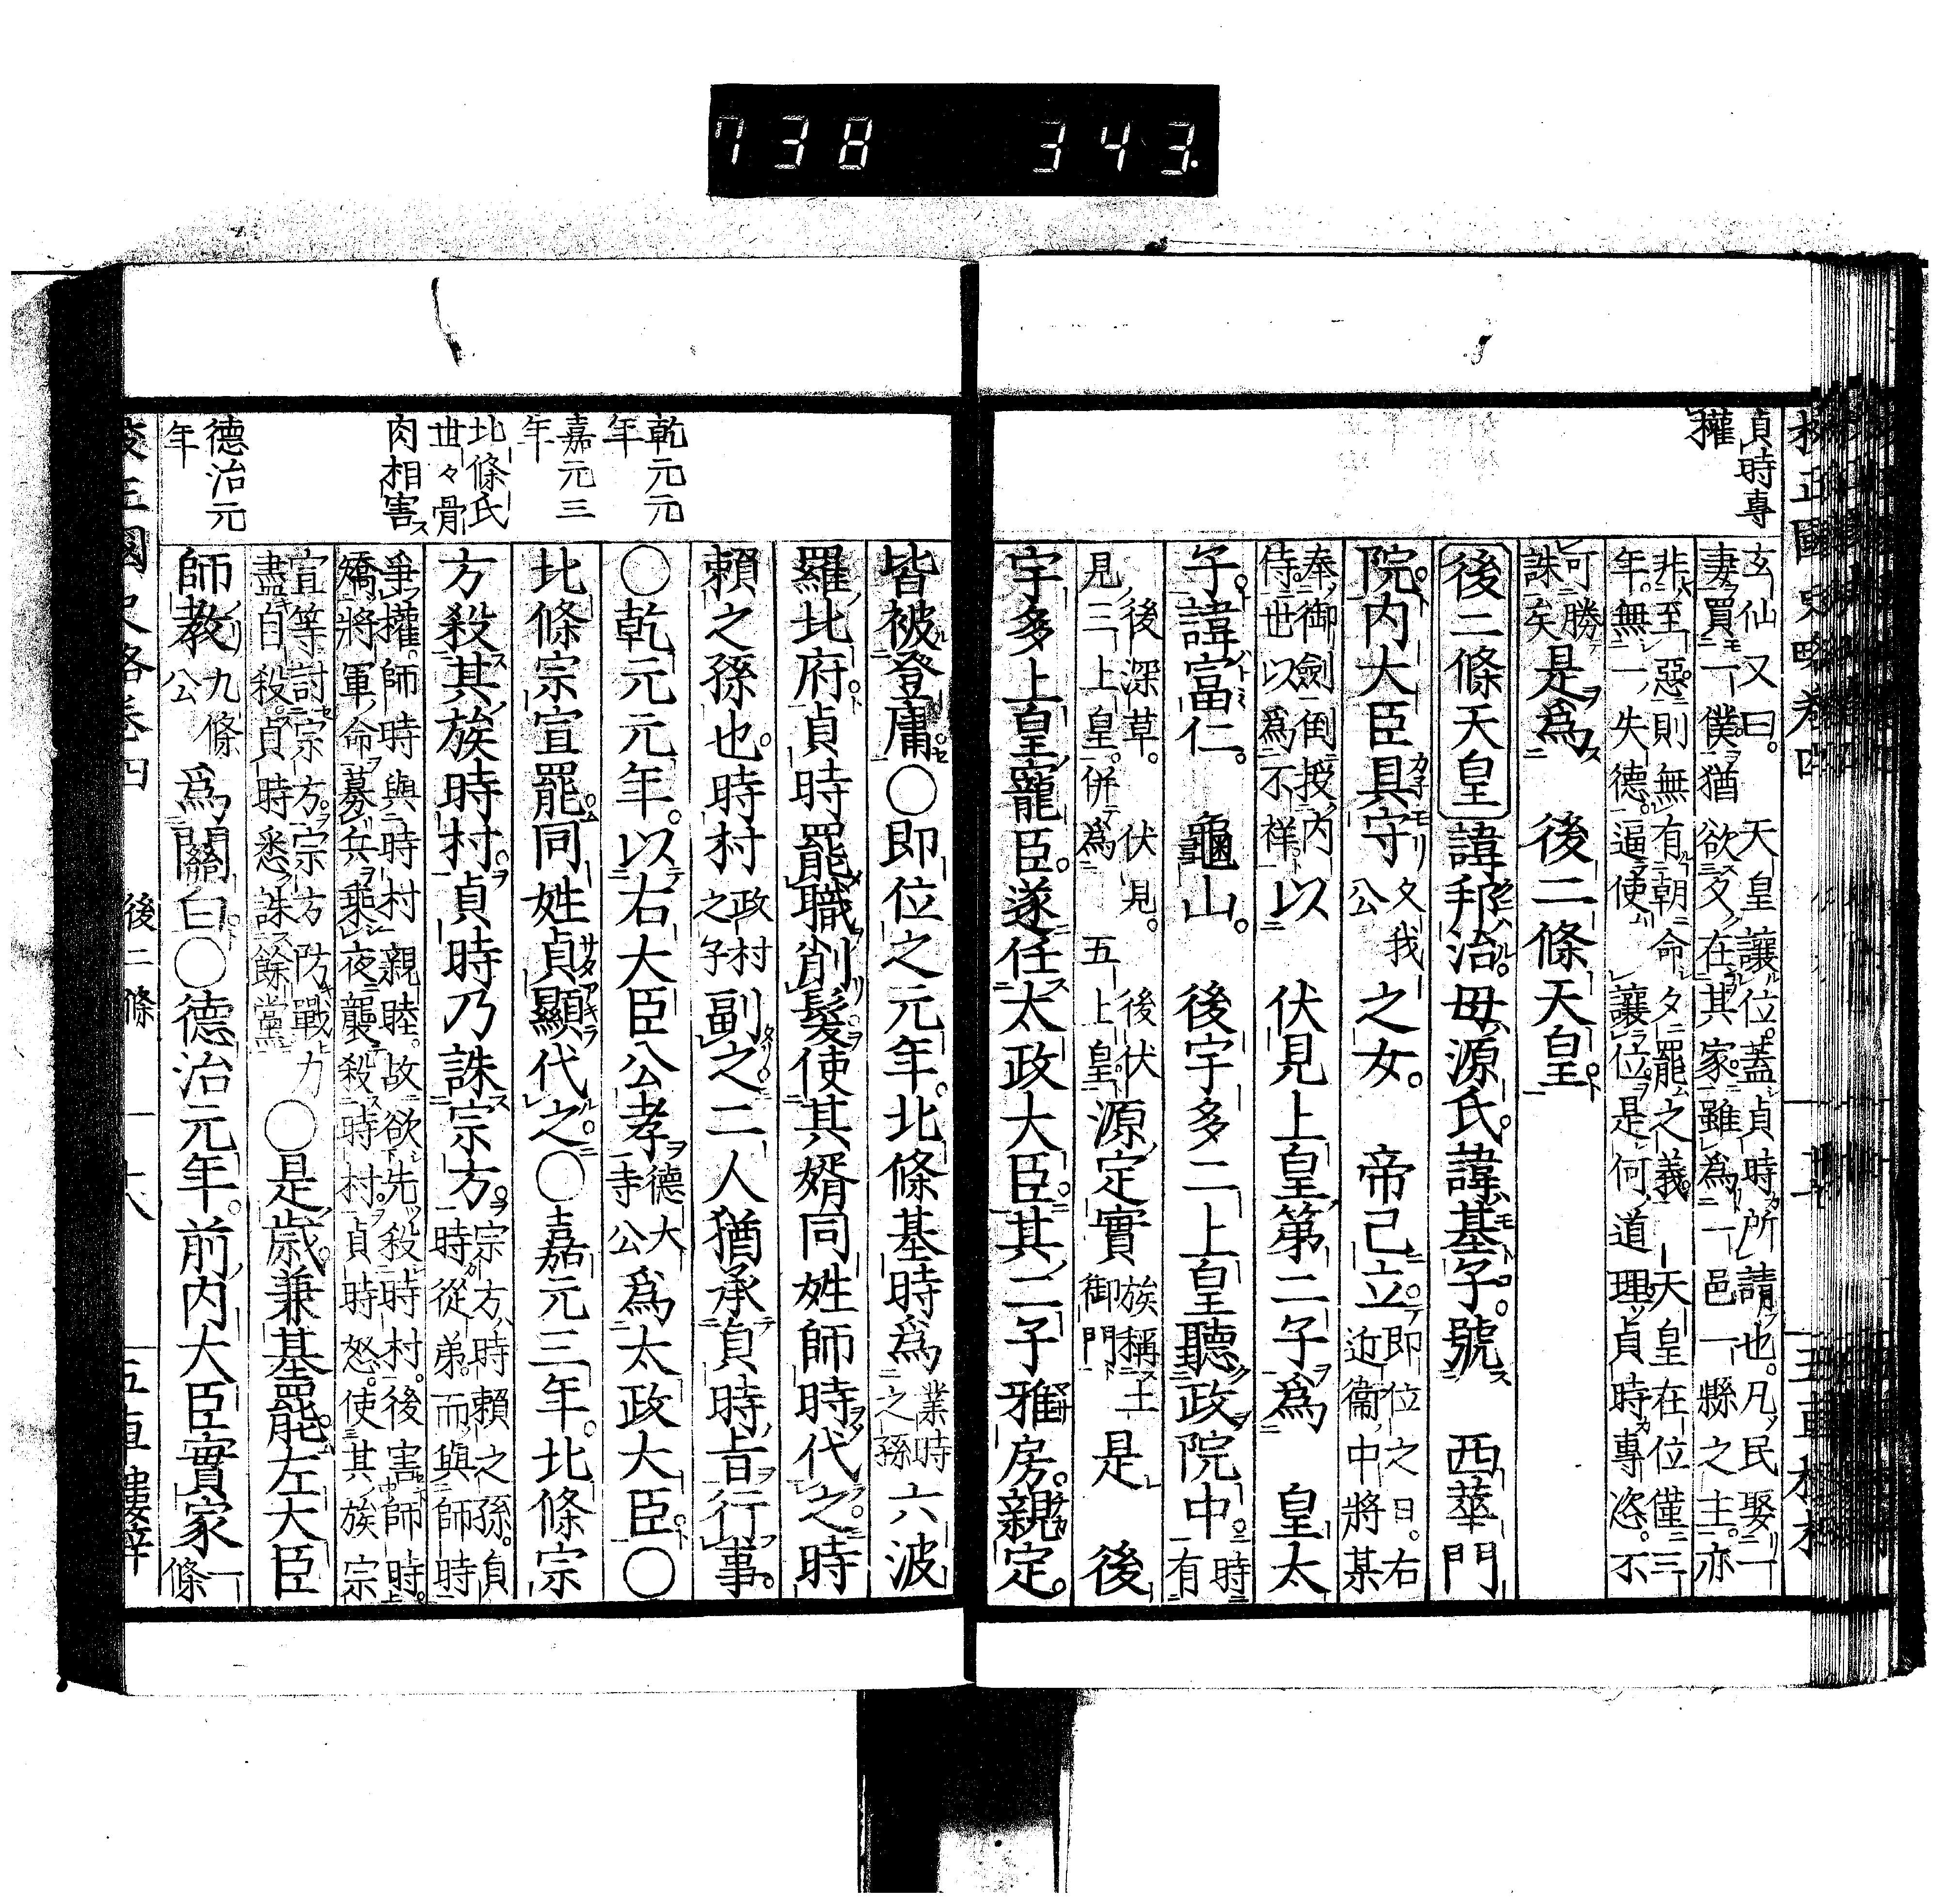 738 343.
校正國史略卷四
貞時專
權
玄仙又曰。天皇讓位。蓋貞時所請也。凡民娶一
妻買一僕。猶欲久在其家。雖爲一邑一縣之主。亦
非至惡。則無有朝命夕罷之義。天皇在位僅三
年。無一失德。逼使讓位。是何道理。貞時專恣。不
可勝
誅矣
是爲 後二條天皇。
後二條天皇 諱邦治。母源氏。諱基子。號 西華門
院。内大臣具守
久我
公
之女。 帝己立。
即位之日。右
近衞中將某
奉御劍倒授内
侍。世以爲不祥
以 伏見上皇第二子爲 皇太
子。諱富仁。 龜山。 後宇多二上皇聽政院中。
時
有
後深草。 伏見。 後伏
見三上皇。併爲 五 上皇
源定實
族稱土
御門
是 後
宇多上皇寵臣。遂任太政大臣。其二子雅房。親定。
皆被登庸。○即位之元年。北條基時爲
業時
之孫
六波
羅北府。貞時罷職削髮。使其婿同姓師時代之。時
賴之孫也。時村
政村
之子
副之。二人猶承貞時旨行事。
○乾元元年。以右大臣公孝
德大
寺公
爲太政大臣。○
北條宗宣罷。同姓貞顯代之。○嘉元三年。北條宗
方殺其族時村。貞時乃誅宗方。
宗方時賴之孫。貞
時從弟。而與師時
爭權。師時與時村親睦。故欲先殺時村。後害師時。
矯將軍命募兵。乘夜襲殺時村。貞時怒。使其族宗
宣等討宗方。宗方防戰力
盡自殺。貞時悉誅餘黨
○是歲。兼基罷。左大臣
師教
九條
公
爲關白。○德治元年。前内大臣實家
一
條
乾元元
年
嘉元三
年
北條氏
世々骨
肉相害
德治元
年
後二條